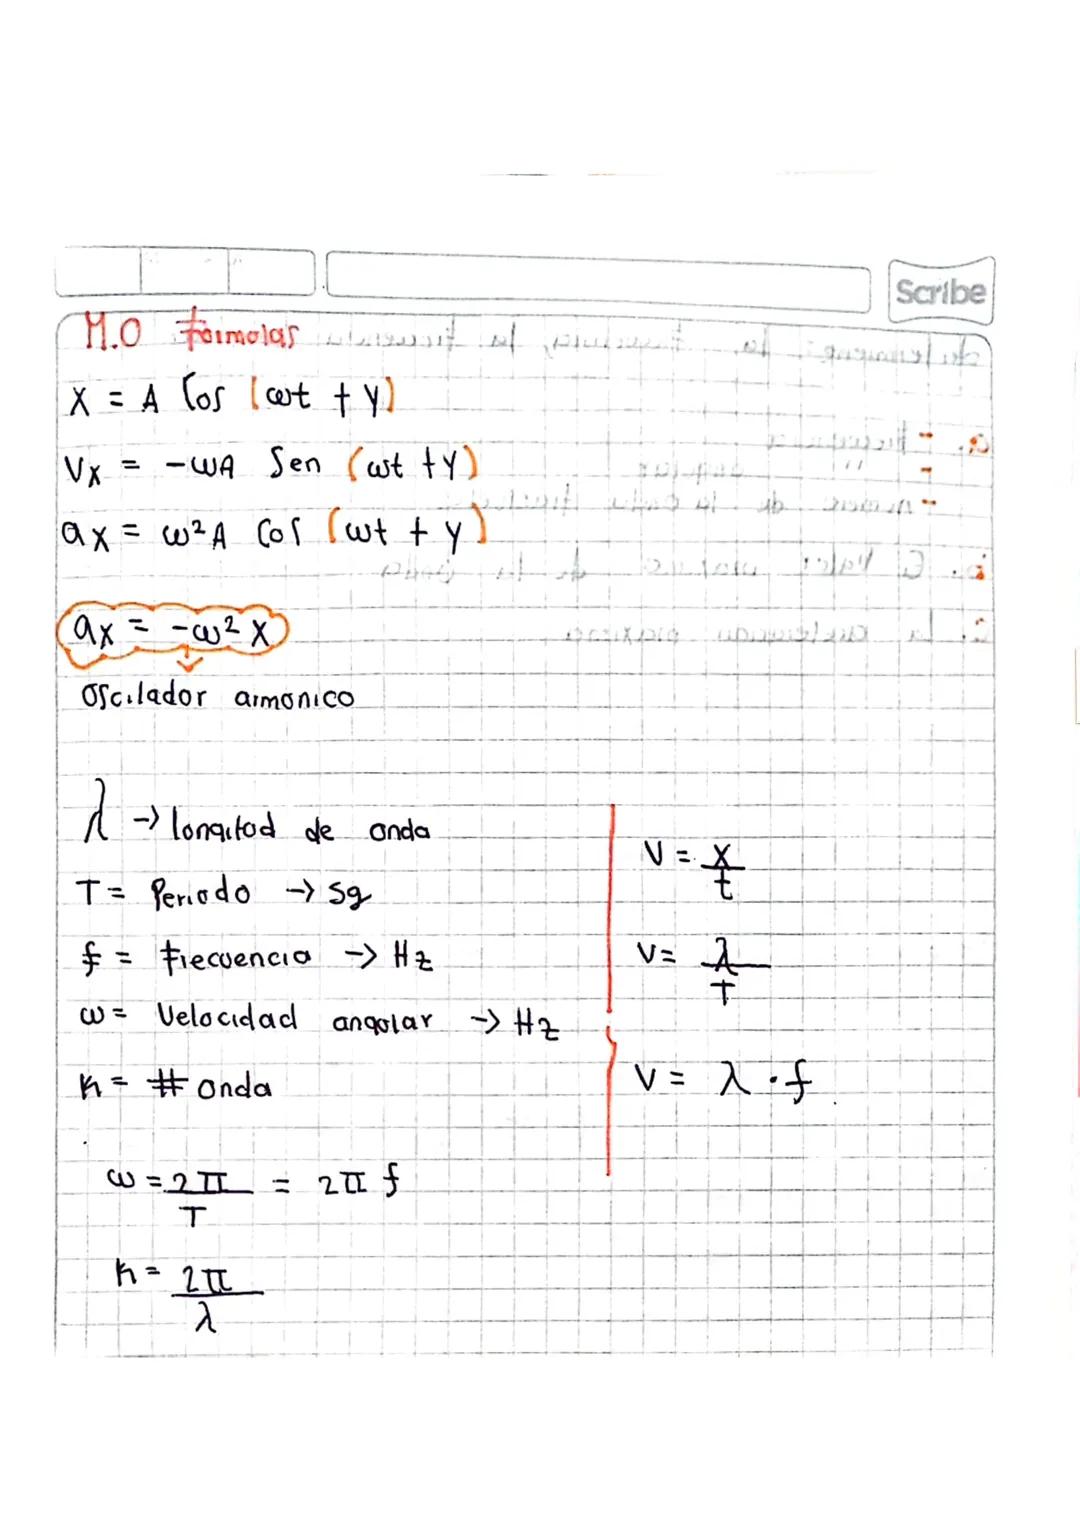 Scribe
M.O Formolas
X = A Cos (ωt + y)
Vx = -ωA Sen (ωt + y)
ax = ω²A Cos (ωt + y)
ax = -ω² X
Oscilador armonico
λ → longitod de onda
T = Periodo → sg
f = frecuencia → Hz
ω = Velocidad angolar → Hz
K = # onda
ω = 2π/T = 2π f
K = 2π/λ
V = X/t
V = λ/T
V = λ · f